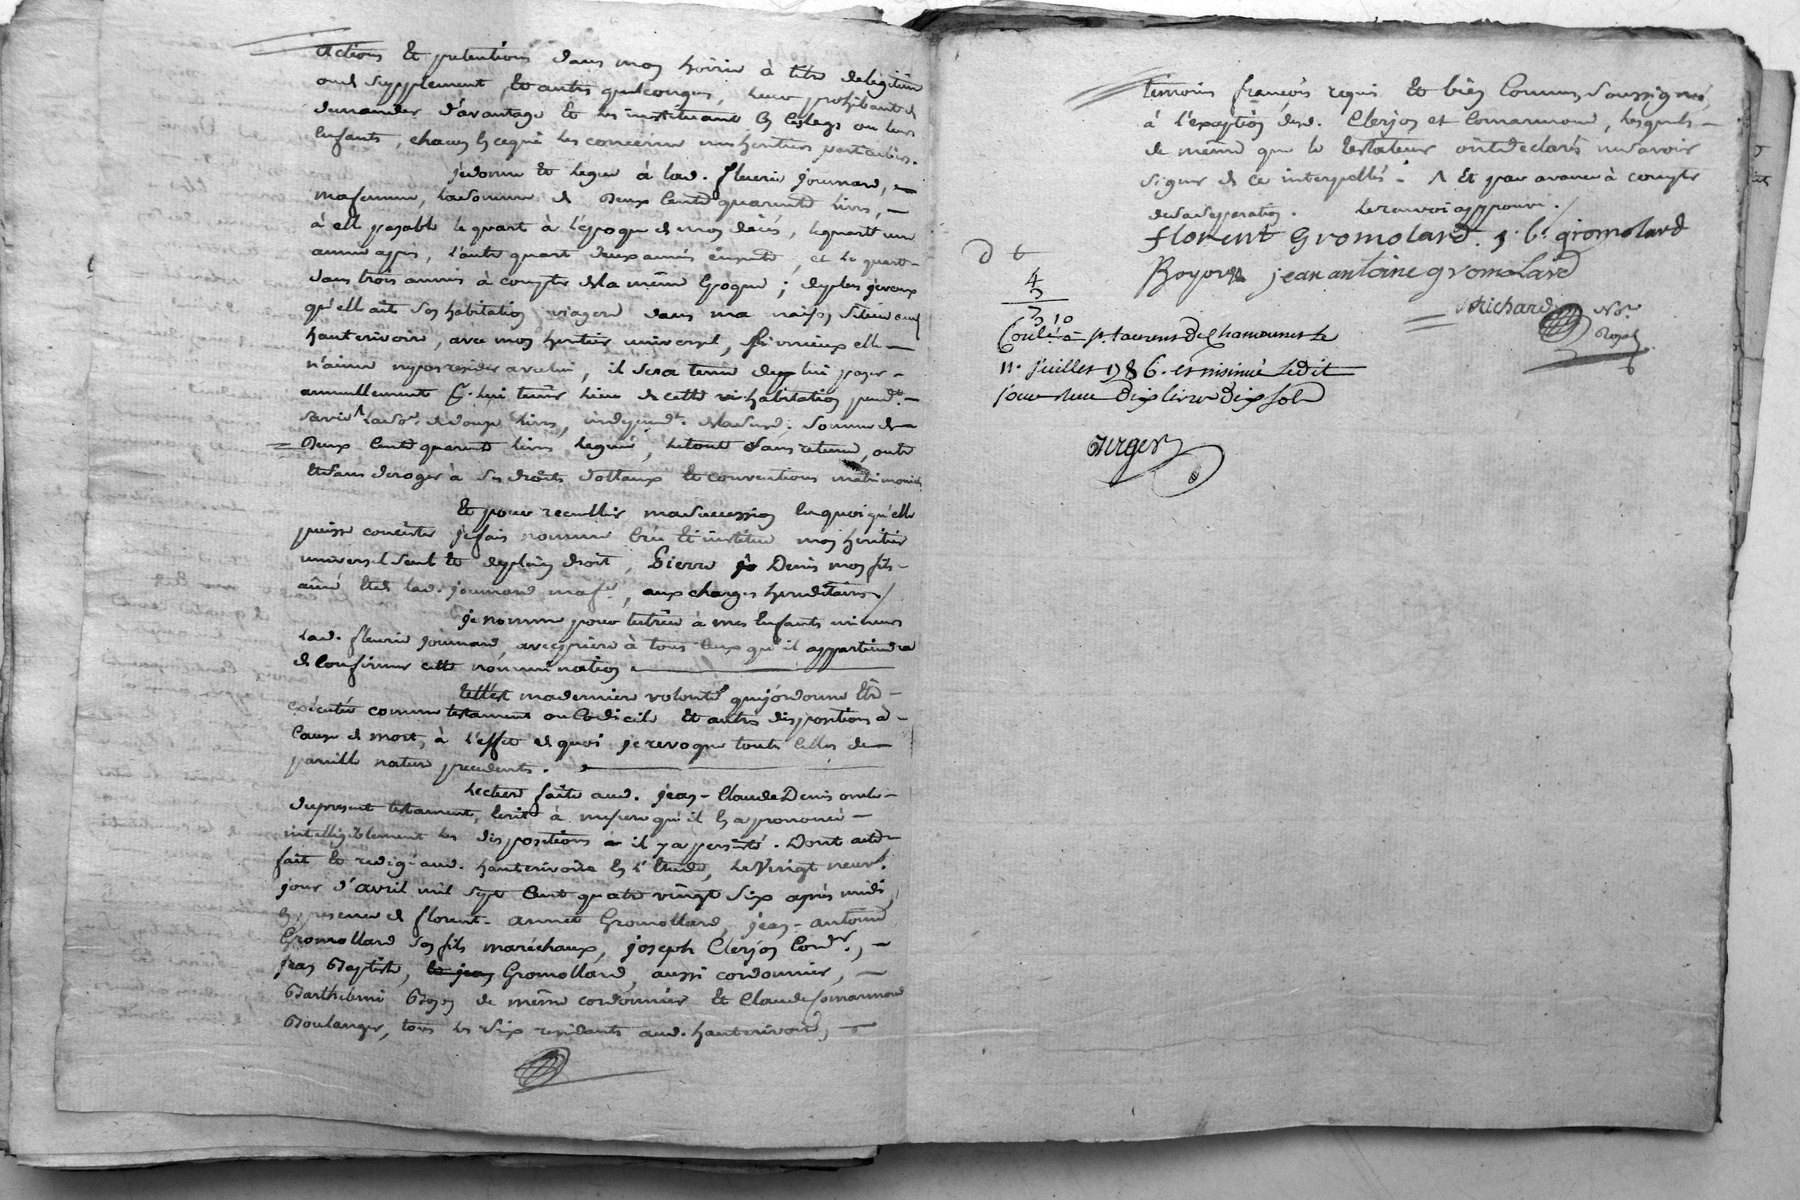 actions et pretentions dans mon hoirie à titre delegitime
oud supplement, et autres quelconques, leur prohibant d
demander d'avantage et les instituant En Ceslegs ou leurs
Enfants, chacun En cequi les concerne mes heritiers particuliers.
jedonne et legue à lad. fleurie joürnard,
mafemme, lasomme de Deux Cents quarente livres,
à elle payable le quart à l'époque de mon décés, lequart un
année après, l'autre quart deux années ensuite, et le quart
dans trois années à compter dela même Epoque ; deplus jeveux
qu'elle ait son habitation viagere dans ma maison située aud
hauterivoire, avec mon heritier universel, si mieux elle
n'aime y pas resider avec lui, il sera tenu de lui payer
annuellement pr. lui tenir lieu de cette habitation pendt.
savie ^ la so. de douze livres, independt. de lasusd. somme de
Deux Cents quarente livres leguée, letout sans retenue, outre
et sans deroger à ses droits dottaux et conventions matrimoniales
Et pour recueillir masuccession En quoi qu'elle
puisse consister je fais nomme Crée et institue mon heritier
universel seul et deplein droit, Pierre Denis mon fils
aîné et de lad. journard maf., aux charges hereditaires /
je nomme pour tutrice à mes Enfants mineurs
lad. fleurie joürnard, avec priere à tous Ceux qu'il appartiendra
de Confirmer cette nommination
telle est maderniere volonté que j'ordonne Etre
exécutée comme testament ou Codicile et autres dispositions à
Cause de mort, à l'effet de quoi je revoque toutes Celles de
pareille nature precedentes.
Lecture faite aud. jean-Claude Denis
dupresent testament, Ecrit à mesure qu'il En a prononcé
intelligiblement les dispositions il y a persisté. Dont acte
fait et redigé aud. hauterivoire En l'Etude, le Vingt neuf
jour d'avril mil Sept Cent quatre vingt Six après midi,
En presence de florent-annet Gromollard, jean-antoine
Gromollard son fils maréchaux, joseph Clerjon Cordr.,
jean Baptiste, Gromollard, aussi cordonnier,
Barthelemi Boyer de même cordonnier et Claude Comarmond
Boulanger, tous les Six residants aud. hauterivoire,
temoins francois requis et bien Connus, Soussignés,
à l'exception desd. Clerjon et Comarmond, lesquels
de même que le testateur ont declarés nesavoir
signer de ce interpellés. ^ Et par avance à compte
desaseparation. Le renvoi approuvé. /
florent Gromolard. j. bt. gromolard
Boyer jean antoine gromolard
Richard No.re
Royal
D t
4
3
7 10
Conlé à St. Laurent de Chamousset Le
11. juillet 1786. et insinué Ledit
jour dix livres dix sols
Verger